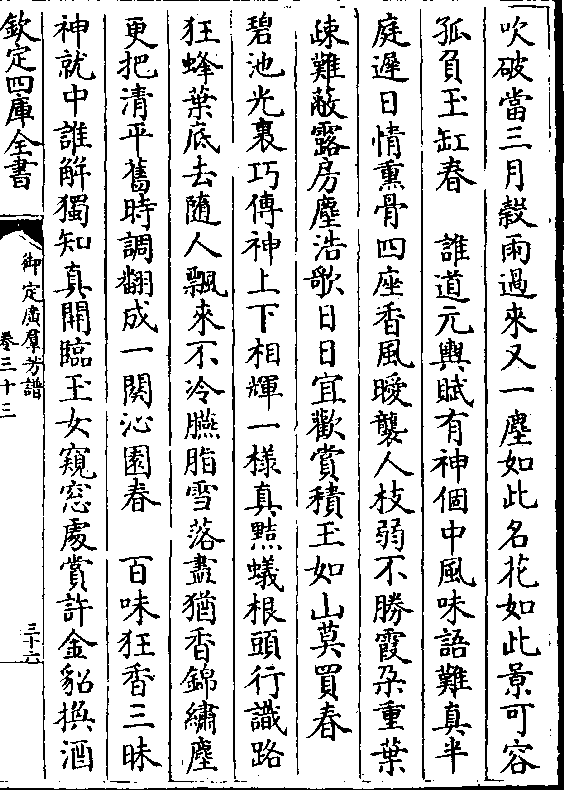 吹破當三月縠雨過來又一塵如此名花如此景可容
孤負玉缸春　誰道元輿賦有神個中風味語難真半
庭遲日情熏骨四座香風暖襲人枝弱不勝霞朶重葉
疎難蔽露房塵浩歌日日宜歡賞積玉如山莫買春
碧池光裏巧傳神上下相輝一様真㸃蟻根頭行識路
狂蜂葉底去随人飄來不冷臙脂雪落盡猶香錦繡塵
更把清平舊時調翻成一闋沁園春　百味狂香三昧
神就中誰解獨知真開臨玉女窺窓處賞許金貂換酒
欽定四庫全書
御定廣羣芳譜
卷三十三
三十六